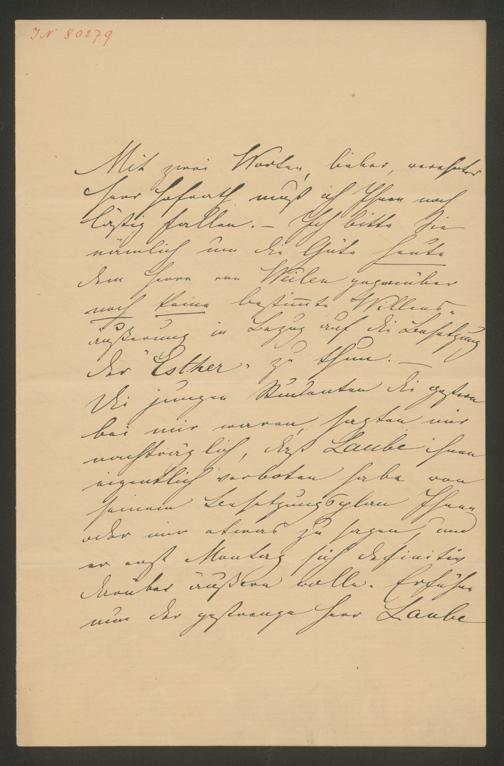 IN 80279
Mit zwei Worten, lieber, verehrter
Herr Hofrath, muß ich Ihnen noch
lästig fallen. – Ich bitte Sie
nämlich um die Güte heute
dem Herrn von Weilen gegenüber
noch keine bestimmte Willens-
äußerung in Bezug auf die Besetzung
der "Esther" zu thun. –
Die jungen Studenten die gestern
bei mir waren, sagten mir
nachträglich, daß Laube ihnen
eigentlich verboten habe von
seinem Besetzungsplan Ihnen
oder mir etwas zu sagen, und
er erst Montag sich definitiv
darüber äußern wolle. Erführe
nun der gestrenge Herr Laube